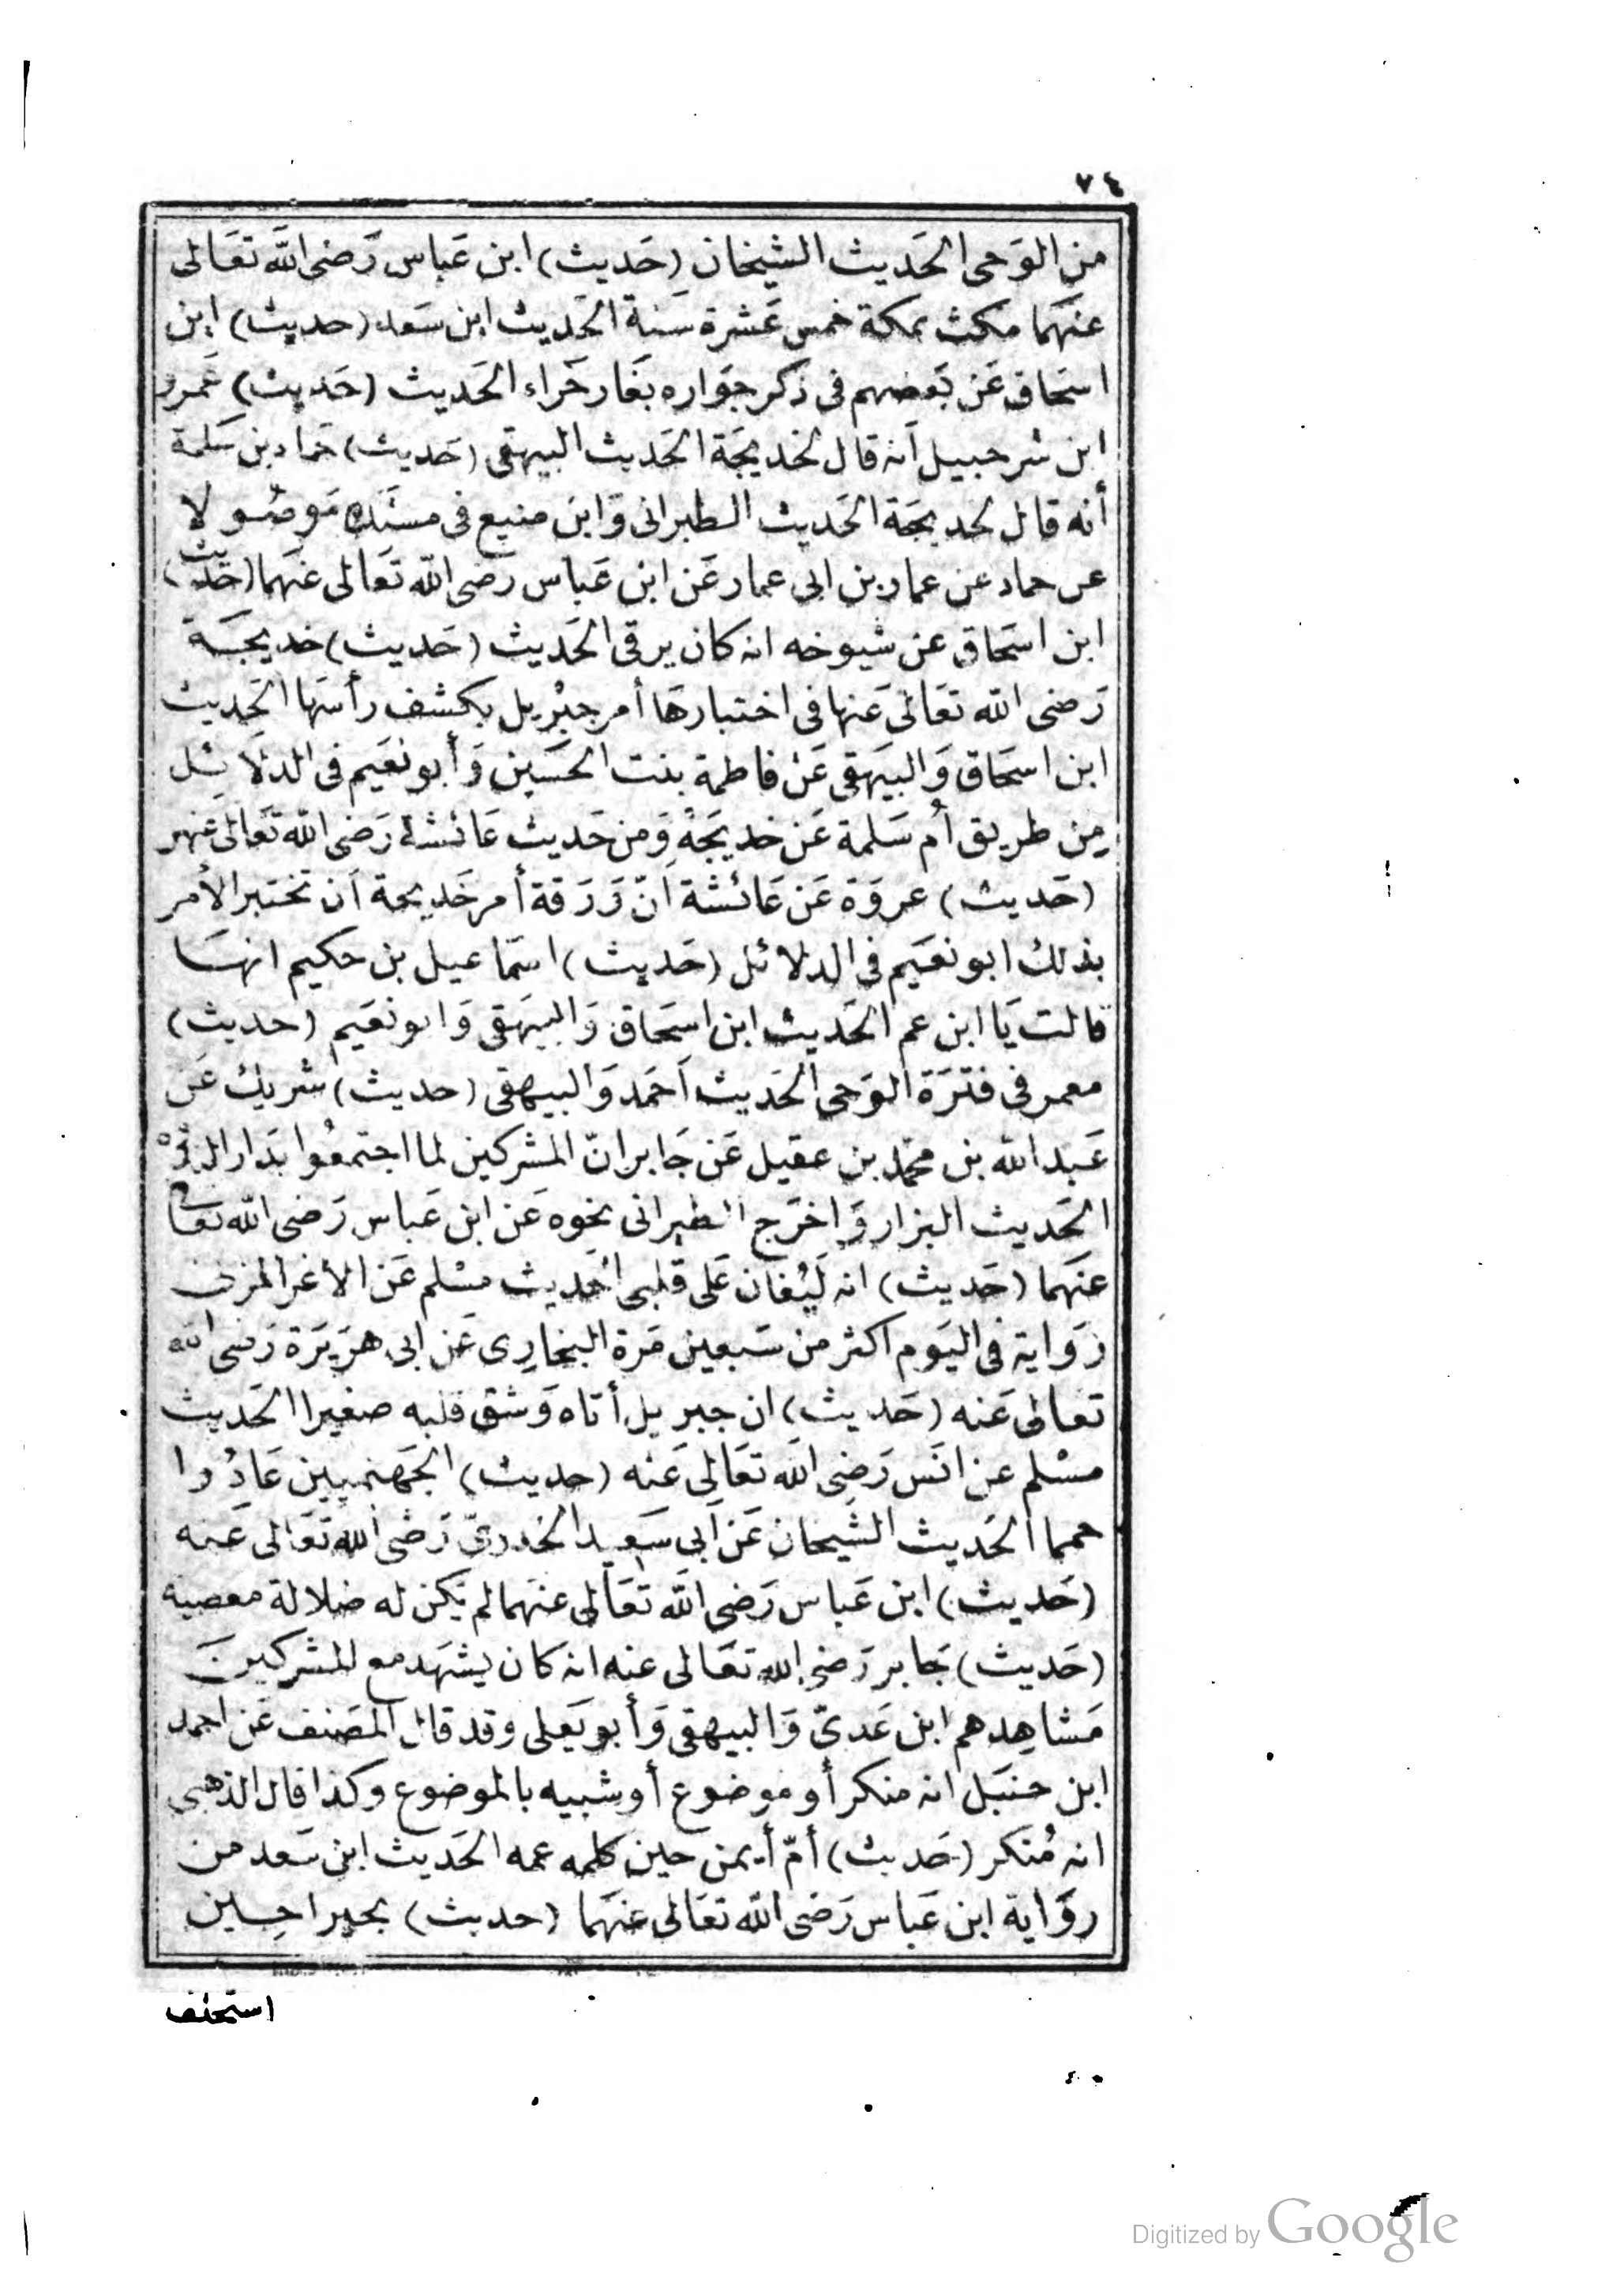 ٧٤
من الوَحى الحَديث الشيخان (حَديث) ابن عَباس رَضى اللّه تعَالى
عنهَما مكث بمكة خمس عَشرة سَنة الحَديث ابن سَعد (حديث) ابن
اسحَاق عَن بَعضهم فى ذكر جوَاره بغَار حَراء الحَديث (حَديث) عَمرو
ابن شرحبيل أنه قال لخديجَة الحَديث البيهقى (حَديث) حَماد بن سَلمة
أنه قال لخديجَة الحَديث الطبرانى وَابن منيع فى مسنَده مَوصُولا
عن حماد عن عمار بن ابى عمار عَن ابن عَباس رَضى اللّه تَعالى عَنهما (حَديث)
ابن اسحَاق عن شيوخه انه كان يرقى الحَديث (حَديث) خديجَة
رَضى اللّه تعَالى عَنها فى اختبارهَا أمر جبْريل بكشف رأسهَا الحَديث
ابن اسحَاق وَالبيَهقى عَن فاطمة بنت الحسَين وَأبو نعَيم فى الدلائل
مِن طريق أُم سَلمة عَن خديجَة وَمن حَديث عَائشة رَضى اللّه تَعالى عَنهم
(حَديث) عروَة عَن عَائشة أنّ وَرَقة أمر خَديجة أن تختبر الأمر
بذلك ابو نعَيم فى الدلائل (حَديث) اسمَاعيل بن حكيم انهَا
قالت يَا ابن عم الحَديث ابن اسحَاق وَالبيهَقى وَابو نعَيم (حديث)
معمر فى فترَة الوَحى الحَديث أحَمد وَالبيهقى (حديث) شريك عَن
عَبد اللّه بن محمّد بن عقيل عَن جَابر انّ المشركين لما اجتمعُوا بدَار الندْوة
الحَديث البزار وَاخرَج الطبرانى نحوه عَن ابن عَباس رَضى اللّه تعَالى
عنهَما (حَديث) انه لَيُغان عَلى قلبى الحَديث مسْلم عَن الأغر المزنى
رَواية فى اليَوم اكثر من سَبعين مَرة البخارِى عَن ابى هرَيرَة رَضى اللّه
تعالى عَنه (حَديث) ان جبريل أتاه وَشق قلبه صغيرا الحَديث
مسْلم عن انَس رَضِى اللّه تعَالى عَنه (حديث) الجَهنميين عَادُوا
حمما الحَديث الشيخان عَن أبى سَعيد الخدرىّ رَضى اللّه تَعالى عَنه
(حَديث) ابن عَباس رَضى اللّه تعَالى عنهَما لم تكن له ضلالة معصية
(حَديث) جَابر رَضى اللّه تعَالى عنه انه كان يشهَد مع المشركينَ
مَشاهِدهم ابن عَدىّ وَالبيهقى وَأبو يَعلى وقد قال المصَنف عَن احمد
ابن حنبَل انه منكر أو موضوع أو شبيه بالموضوع وكذا قال الذهبى
انه مُنكر (حَديث) أمّ أيمن حين كلمه عمه الحَديث ابن سَعد من
روَاية ابن عَباس رَضى اللّه تعَالى عنهَما (حديث) بحيرا حِين
استحلف
Digitized by Google